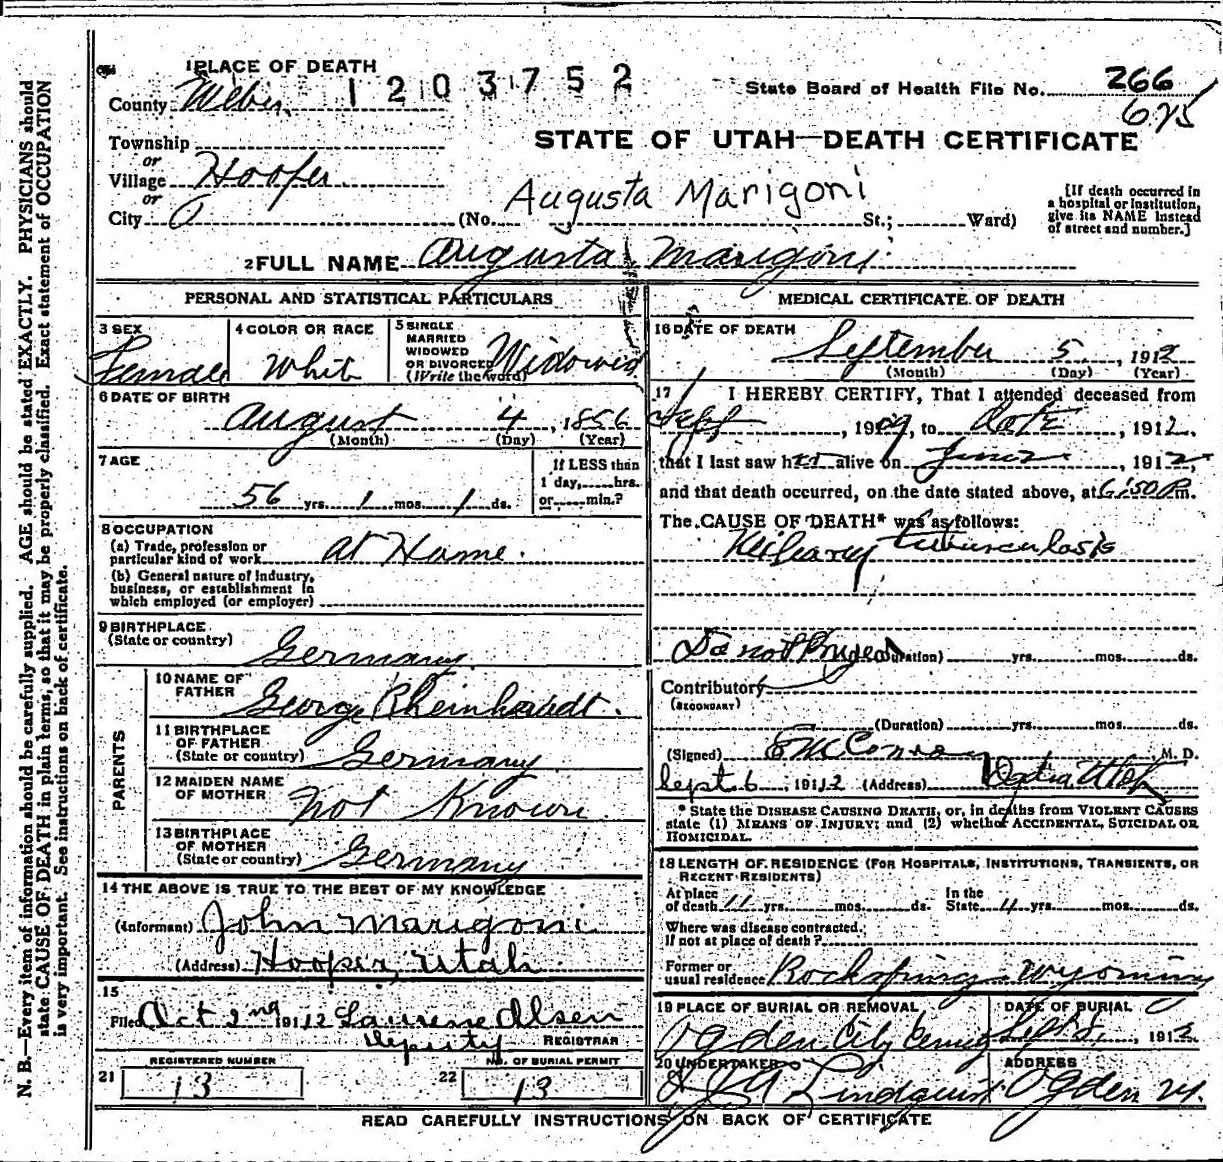 N. B.—Every item of information should be carefully supplied. AGE should be stated EXACTLY. PHYSICIANS should
state CAUSE OF DEATH in plain terms, so that it may be properly classified. Exact statement of OCCUPATION
is very important. See instructions on back of certificate.
1 PLACE OF DEATH
1203752
County Weber
State Board of Health File No. 266
675
STATE OF UTAH—DEATH CERTIFICATE
Township
or
Village Hooper
or
City
(No. St.; Ward)
Augusta Marigoni
[If death occurred in
a hospital or institution,
give its NAME instead
of street and number.]
2 FULL NAME Augusta Marigoni
PERSONAL AND STATISTICAL PARTICULARS
3 SEX
Female
4 COLOR OR RACE
White
5 SINGLE
MARRIED
WIDOWED
OR DIVORCED
(Write the word)
Widowed
6 DATE OF BIRTH
August 4, 1856
(Month) (Day) (Year)
7 AGE
56 yrs. 1 mos. 1 ds.
If LESS than
1 day, hrs.
or min.?
8 OCCUPATION
(a) Trade, profession or
particular kind of work At Home.
(b) General nature of Industry,
business, or establishment in
which employed (or employer)
9 BIRTHPLACE
(State or country) Germany
PARENTS
10 NAME OF
FATHER George Rheinhardt.
11 BIRTHPLACE
OF FATHER
(State or country) Germany
12 MAIDEN NAME
OF MOTHER Not Known
13 BIRTHPLACE
OF MOTHER
(State or country) Germany
14 THE ABOVE IS TRUE TO THE BEST OF MY KNOWLEDGE
(Informant) John Marigoni
(Address) Hooper, Utah
15
Filed Oct 2nd 1912 Laurene Olsen
Deputy REGISTRAR
REGISTERED NUMBER
21 13
NO. OF BURIAL PERMIT
22 13
MEDICAL CERTIFICATE OF DEATH
16 DATE OF DEATH
September 5, 1912
(Month) (Day) (Year)
17 I HEREBY CERTIFY, That I attended deceased from
Sept, 1909, to date, 1912,
that I last saw her alive on June, 1912,
and that death occurred, on the date stated above, at 6:50 P m.
The CAUSE OF DEATH* was as follows:
Miliary tuberculosis
Do not know (Duration) yrs. mos. ds.
Contributory
(SECONDARY)
(Duration) yrs. mos. ds.
(Signed) M. D.
Sept. 6, 1912 (Address) Ogden Utah
* State the DISEASE CAUSING DEATH, or, in deaths from VIOLENT CAUSES
state (1) MEANS OF INJURY; and (2) whether ACCIDENTAL, SUICIDAL OR
HOMICIDAL.
18 LENGTH OF RESIDENCE (FOR HOSPITALS, INSTITUTIONS, TRANSIENTS, OR
RECENT RESIDENTS)
At place
of death 11 yrs. mos. ds.
In the
State 11 yrs. mos. ds.
Where was disease contracted,
If not at place of death?
Former or
usual residence Rocksprings Wyoming
19 PLACE OF BURIAL OR REMOVAL
Ogden City Cemy
DATE OF BURIAL
Sept 8, 1912
20 UNDERTAKER
Lindquist
ADDRESS
Ogden Ut.
READ CAREFULLY INSTRUCTIONS ON BACK OF CERTIFICATE